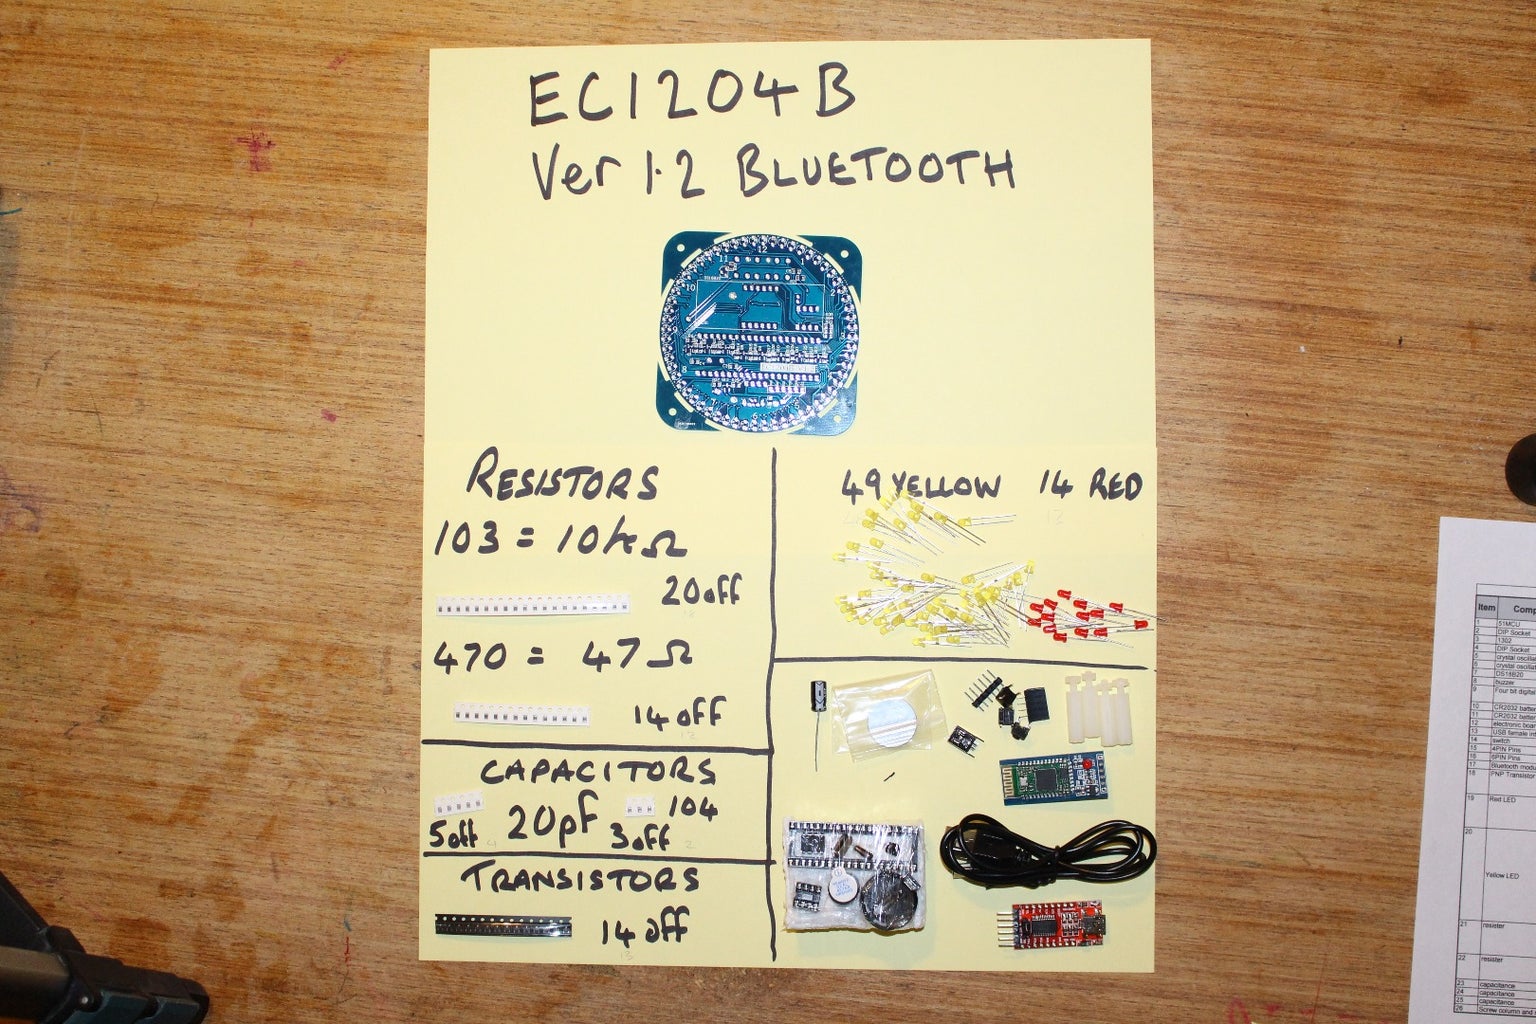 EC1204B
Ver 1.2 BLUETOOTH
12
11
1
10
2
9
8
RESISTORS
103 = 10k Ω
20 off
470 = 47 Ω
14 off
CAPACITORS
5 off 20pF 3 off 104
TRANSISTORS
14 off
49 YELLOW 14 RED
Item
1 51MCU
2 DIP Socket
3 1302
4 DIP Socket
5 crystal
6 crystal
7 DS18B20
8 buzzer
9 Four bit
10 CR2032
11 CR2032
12 electronic
13 USB female
14 switch
15 4PIN Pins
16 6PIN Pins
17 Bluetooth
18 PNP
19 Red LED
20 Yellow LED
21 resister
22 resister
23 capacitance
24 capacitance
25 capacitance
26 Screw column and